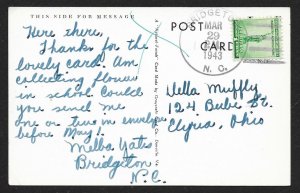 THIS SIDE FOR MESSAGE
Here there,
Thanks for the
lovely card. Am
collecting flower
in school. Could
you send me
one or two in envelope
before May 1.
Melba Yates
Bridgeton
N.C.
POST
CARD
BRIDGETON
MAR
29
1943
N. C.
Della Muffly
124 Bube St.
Elyria, Ohio